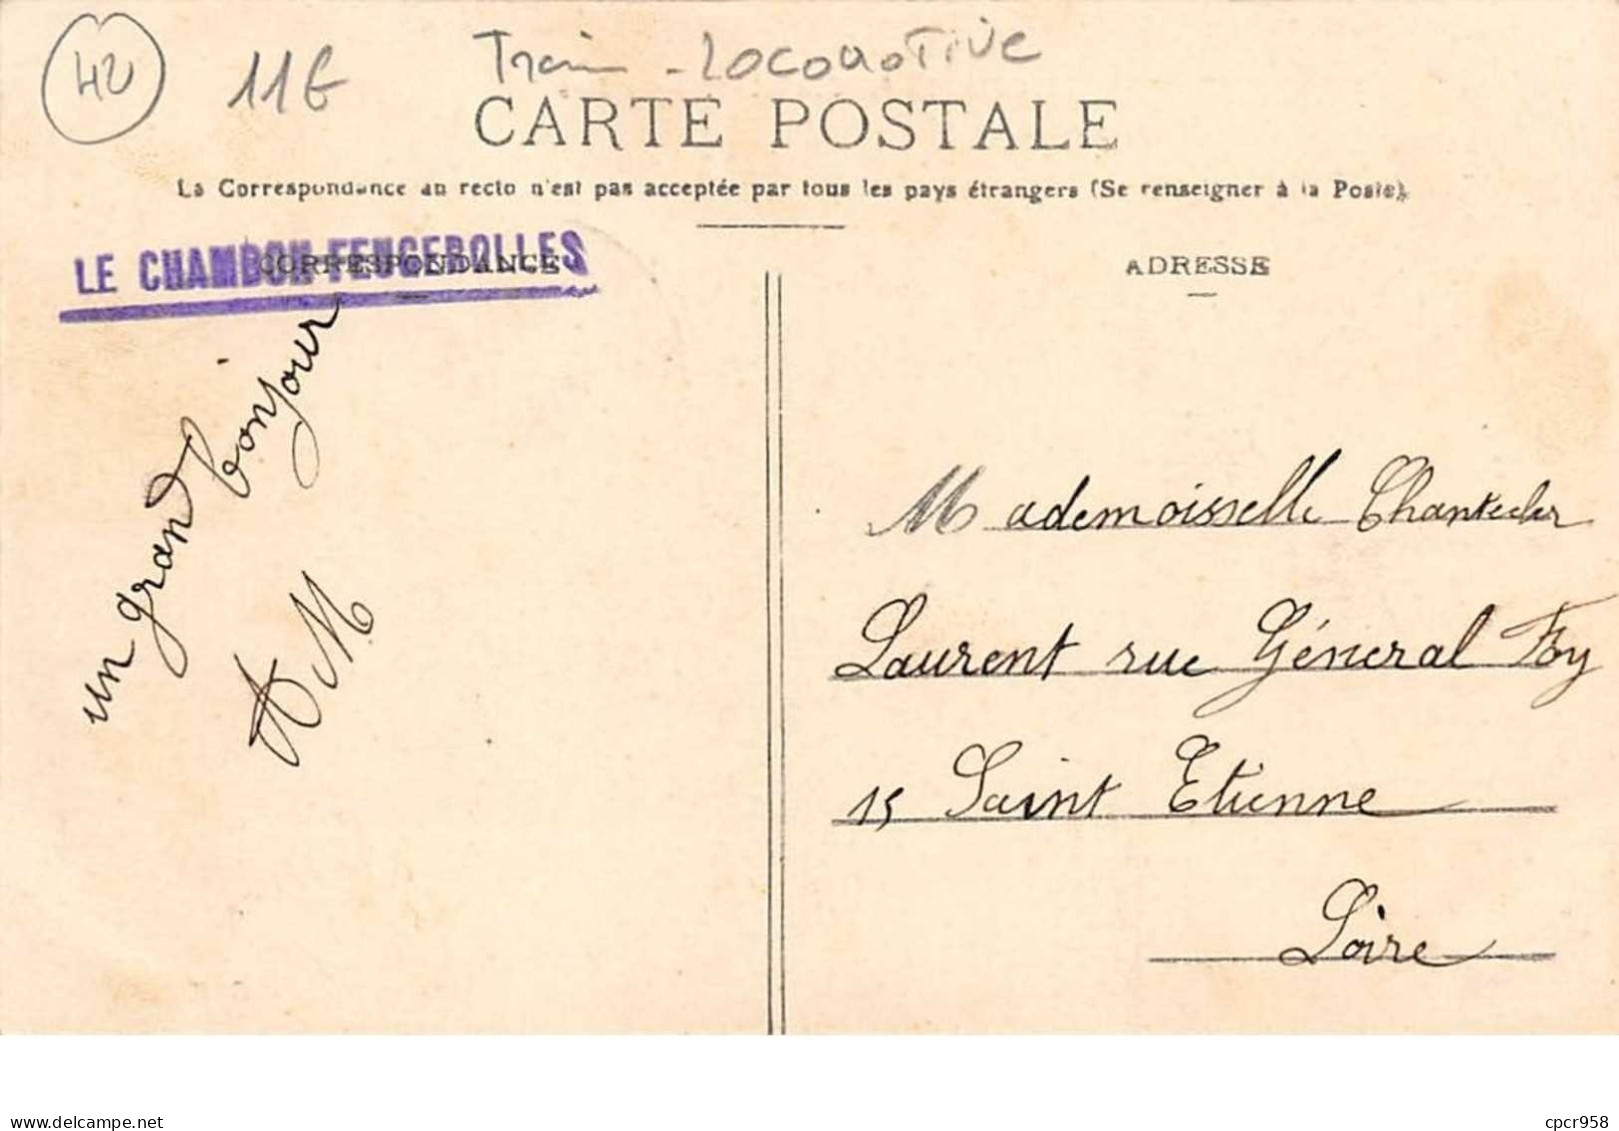 42
11€
Train - LOCOMOTIVE
CARTE POSTALE
La Correspondance au recto n'est pas acceptée par tous les pays étrangers (Se renseigner à la Poste).
LE CHAMBON-FEUGEROLLES
CORRESPONDANCE
ADRESSE
un grand bonjour
AM
Mademoisselle Chantecler
Laurent rue Géneral Foy
15 Saint Etienne
Loire
www.delcampe.net
cpcr958